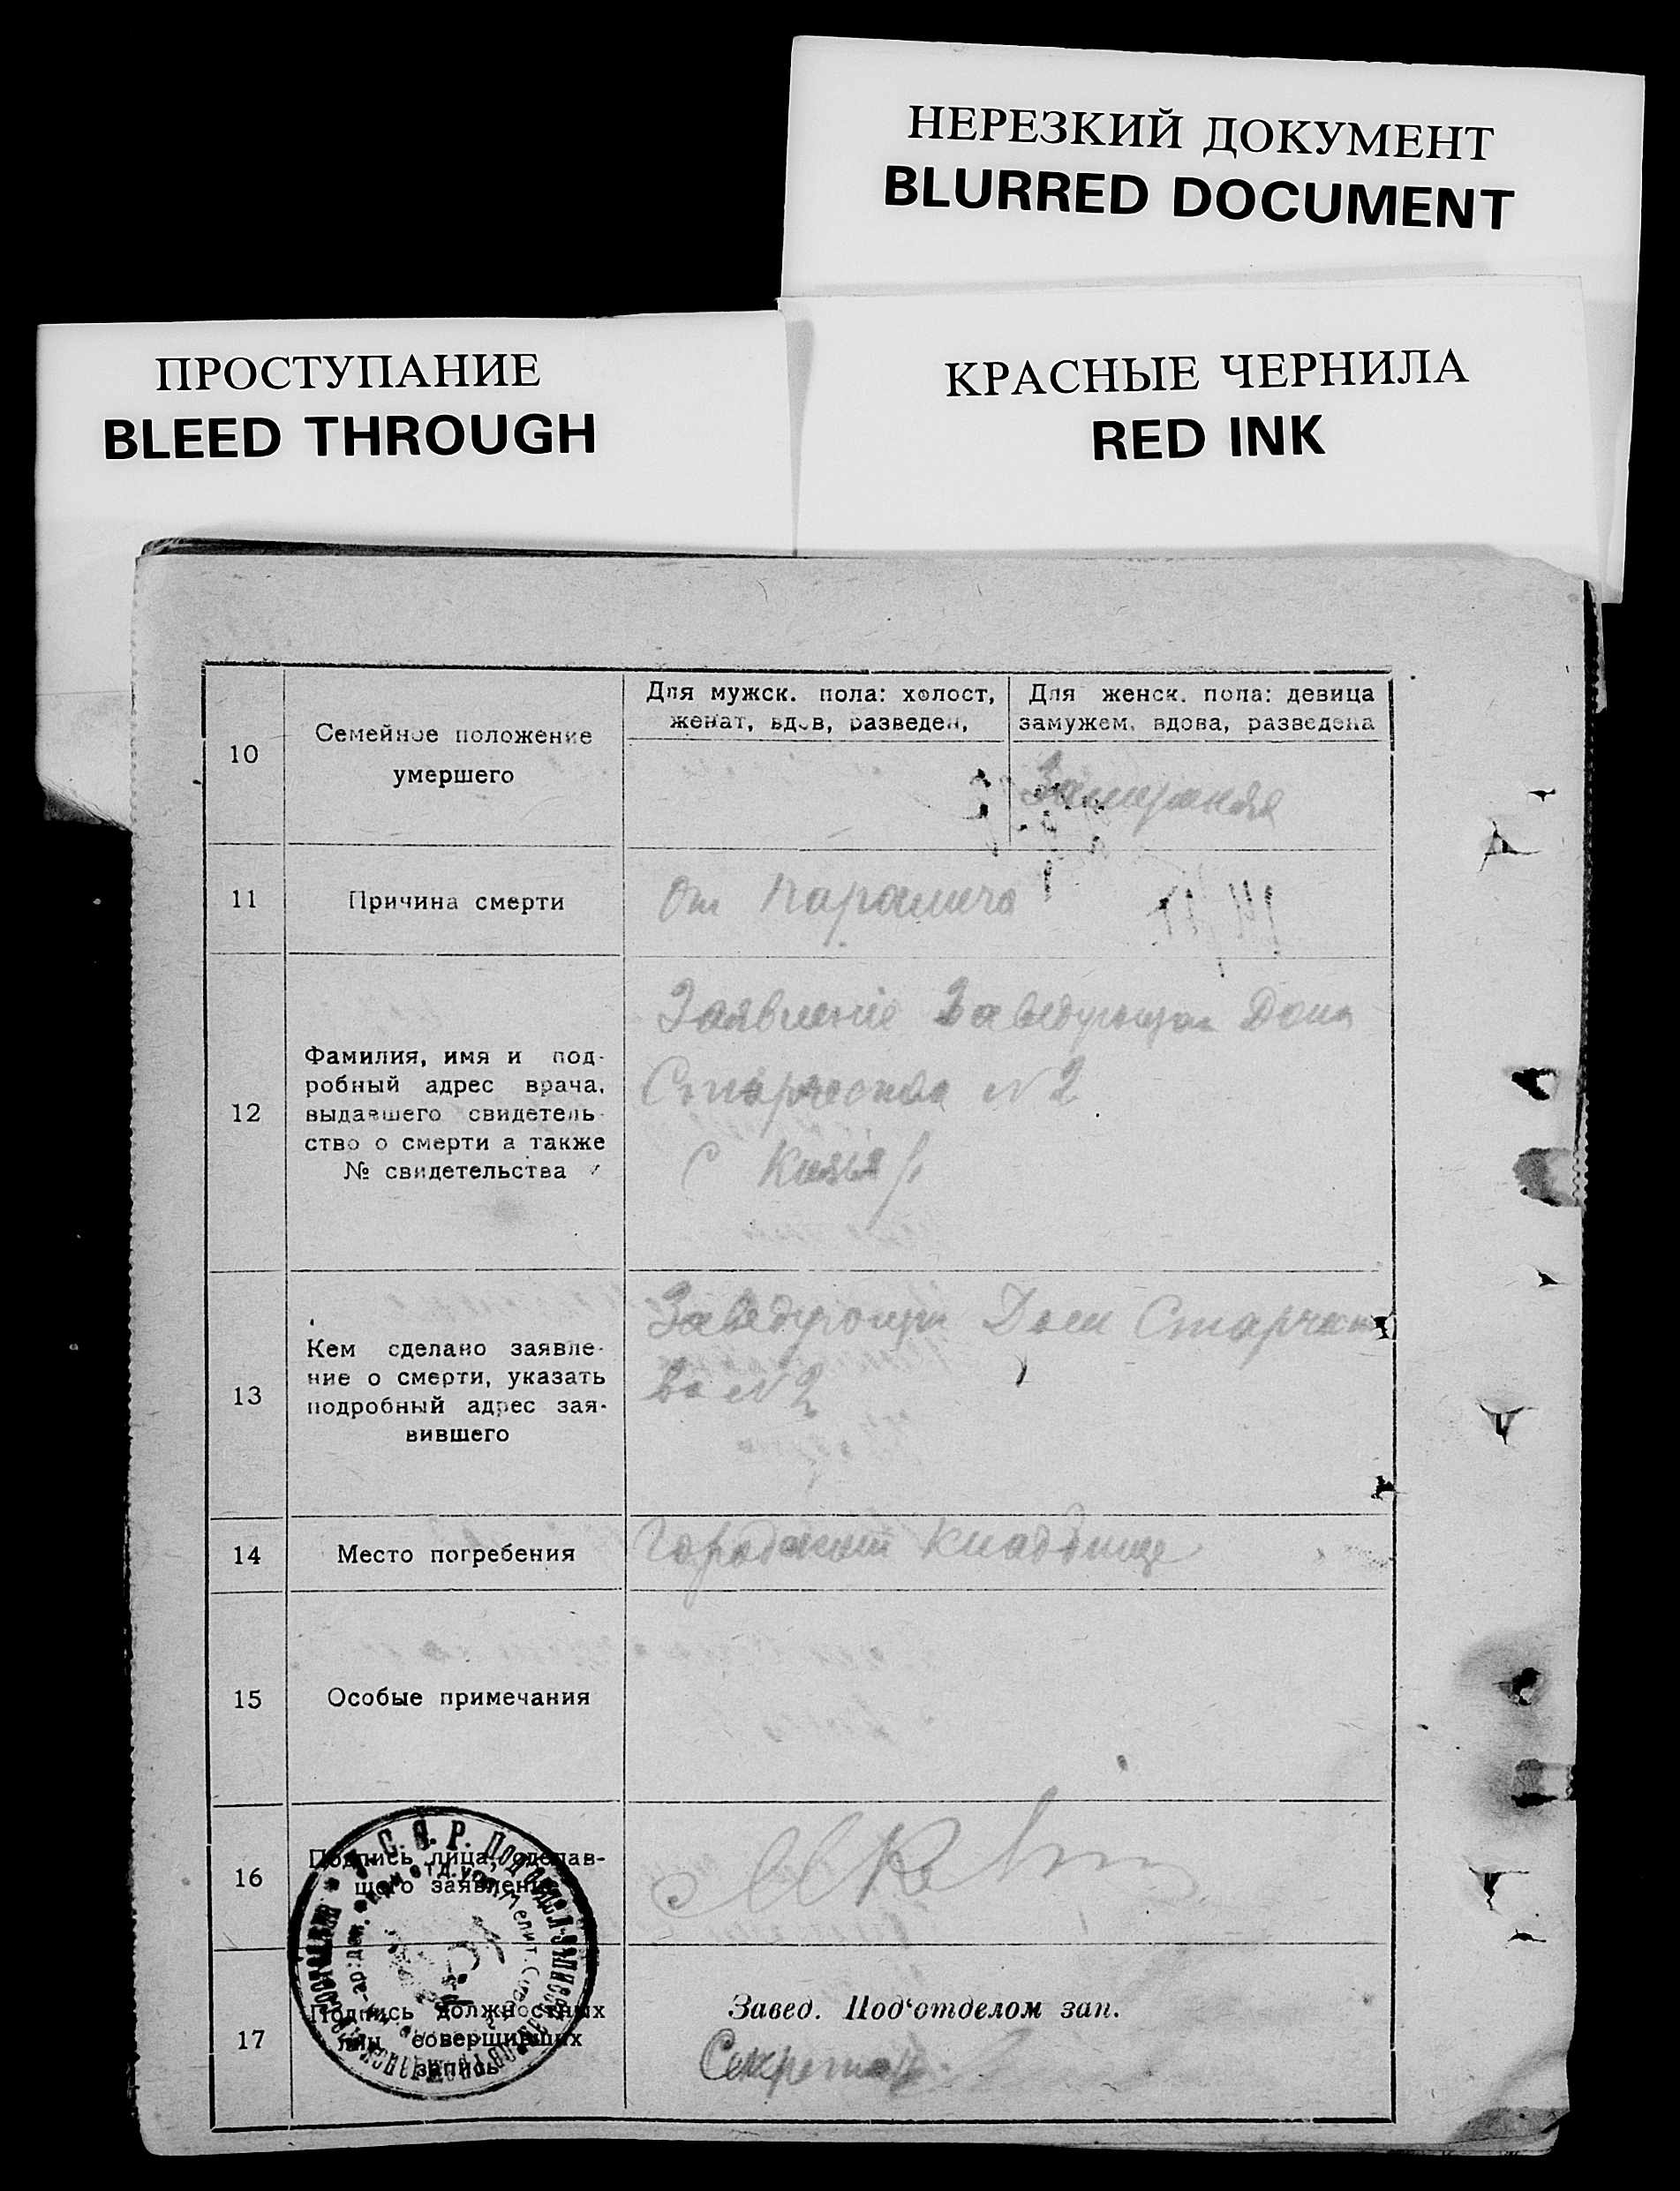 НЕРЕЗКИЙ ДОКУМЕНТ
BLURRED DOCUMENT
ПРОСТУПАНИЕ
BLEED THROUGH
КРАСНЫЕ ЧЕРНИЛА
RED INK
10
Семейное положение
умершего
Для мужск. пола: холост,
женат, вдов, разведен,
Для женск. пола: девица
замужем, вдова, разведена
Замужняя
11
Причина смерти
От паралича
12
Фамилия, имя и под-
робный адрес врача,
выдавшего свидетель-
ство о смерти а также
№ свидетельства
Заявление Заведующая Дома
Старчества N 2
13
Кем сделано заявле-
ние о смерти, указать
подробный адрес зая-
вившего
Заведующи Дом Старчест
ва N 2
14
Место погребения
Городской кладбище
15
Особые примечания
16
Подпись лица, сделав-
шего заявление
17
Подпись должностных
лиц совершивших
запись
Завед. Под‘отделом зап.
Секретарь